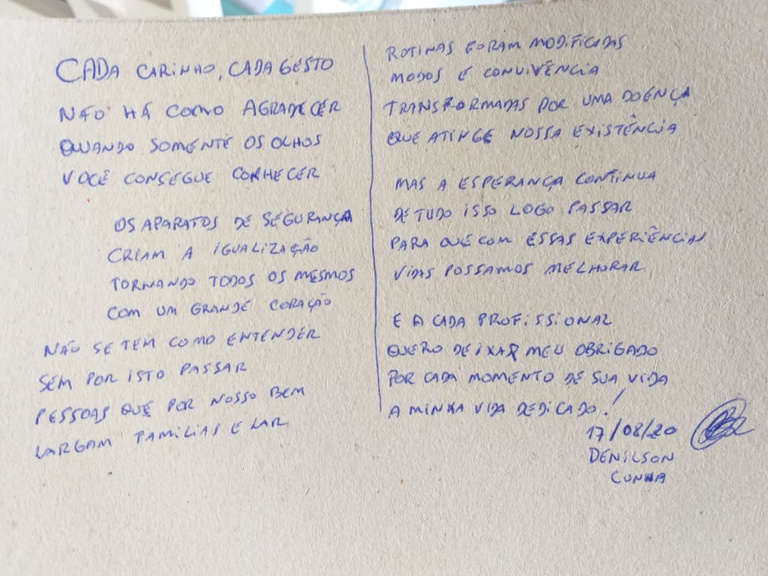 CADA CARINHO, CADA GESTO
NÃO HÁ COMO AGRADECER
QUANDO SOMENTE OS OLHOS
VOCÊ CONSEGUE CONHECER
OS APARATOS DE SEGURANÇA
CRIAM A IGUALIZAÇÃO
TORNANDO TODOS OS MESMOS
COM UM GRANDE CORAÇÃO
NÃO SE TEM COMO ENTENDER
SEM POR ISTO PASSAR
PESSOAS QUE POR NOSSO BEM
LARGAM FAMÍLIAS E LAR
ROTINAS FORAM MODIFICADAS
MODOS E CONVIVÊNCIA
TRANSFORMADAS POR UMA DOENÇA
QUE ATINGE NOSSA EXISTÊNCIA
MAS A ESPERANÇA CONTINUA
DE TUDO ISSO LOGO PASSAR
PARA QUE COM ESSAS EXPERIÊNCIAS
VIDAS POSSAMOS MELHORAR
E A CADA PROFISSIONAL
QUERO DEIXAR MEU OBRIGADO
POR CADA MOMENTO DE SUA VIDA
A MINHA VIDA DEDICADO!
17/08/20
DENILSON
CUNHA